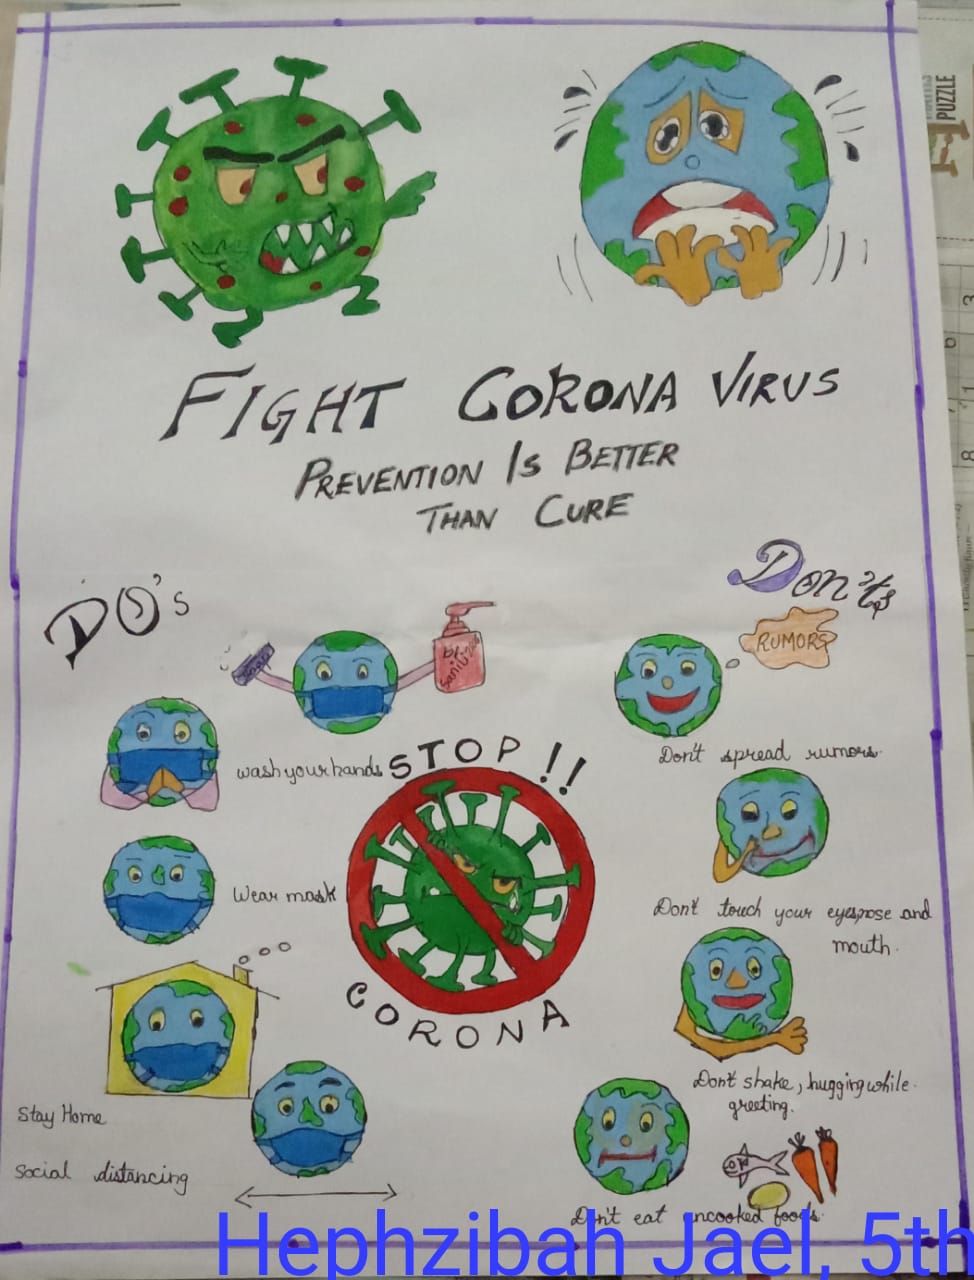 PUZZLE
FIGHT CORONA VIRUS
PREVENTION IS BETTER
THAN CURE
DO's
Don'ts
RUMORS
wash your hands
Wear mask
Stay Home
Social distancing
STOP !!
CORONA
Don't spread rumors.
Don't touch your eyes, nose and
mouth.
Don't shake, hugging while
greeting.
Don't eat uncooked foods.
Hephzibah Jael, 5th